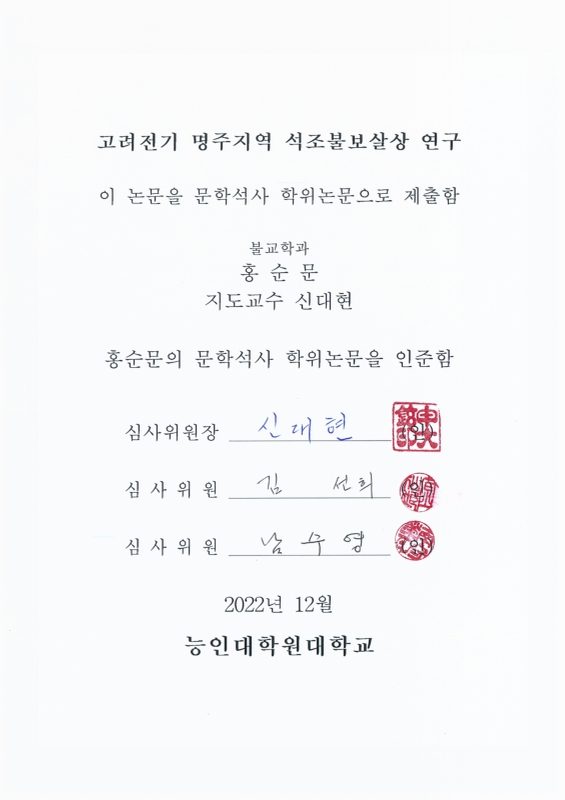 고려전기 명주지역 석조불보살상 연구
이 논문을 문학석사 학위논문으로 제출함
불교학과
홍 순 문
지도교수 신대현
홍순문의 문학석사 학위논문을 인준함
심사위원장 신 대 현 (인)
심 사 위 원 김 선 희 (인)
심 사 위 원 남 수 영 (인)
2022년 12월
능인대학원대학교